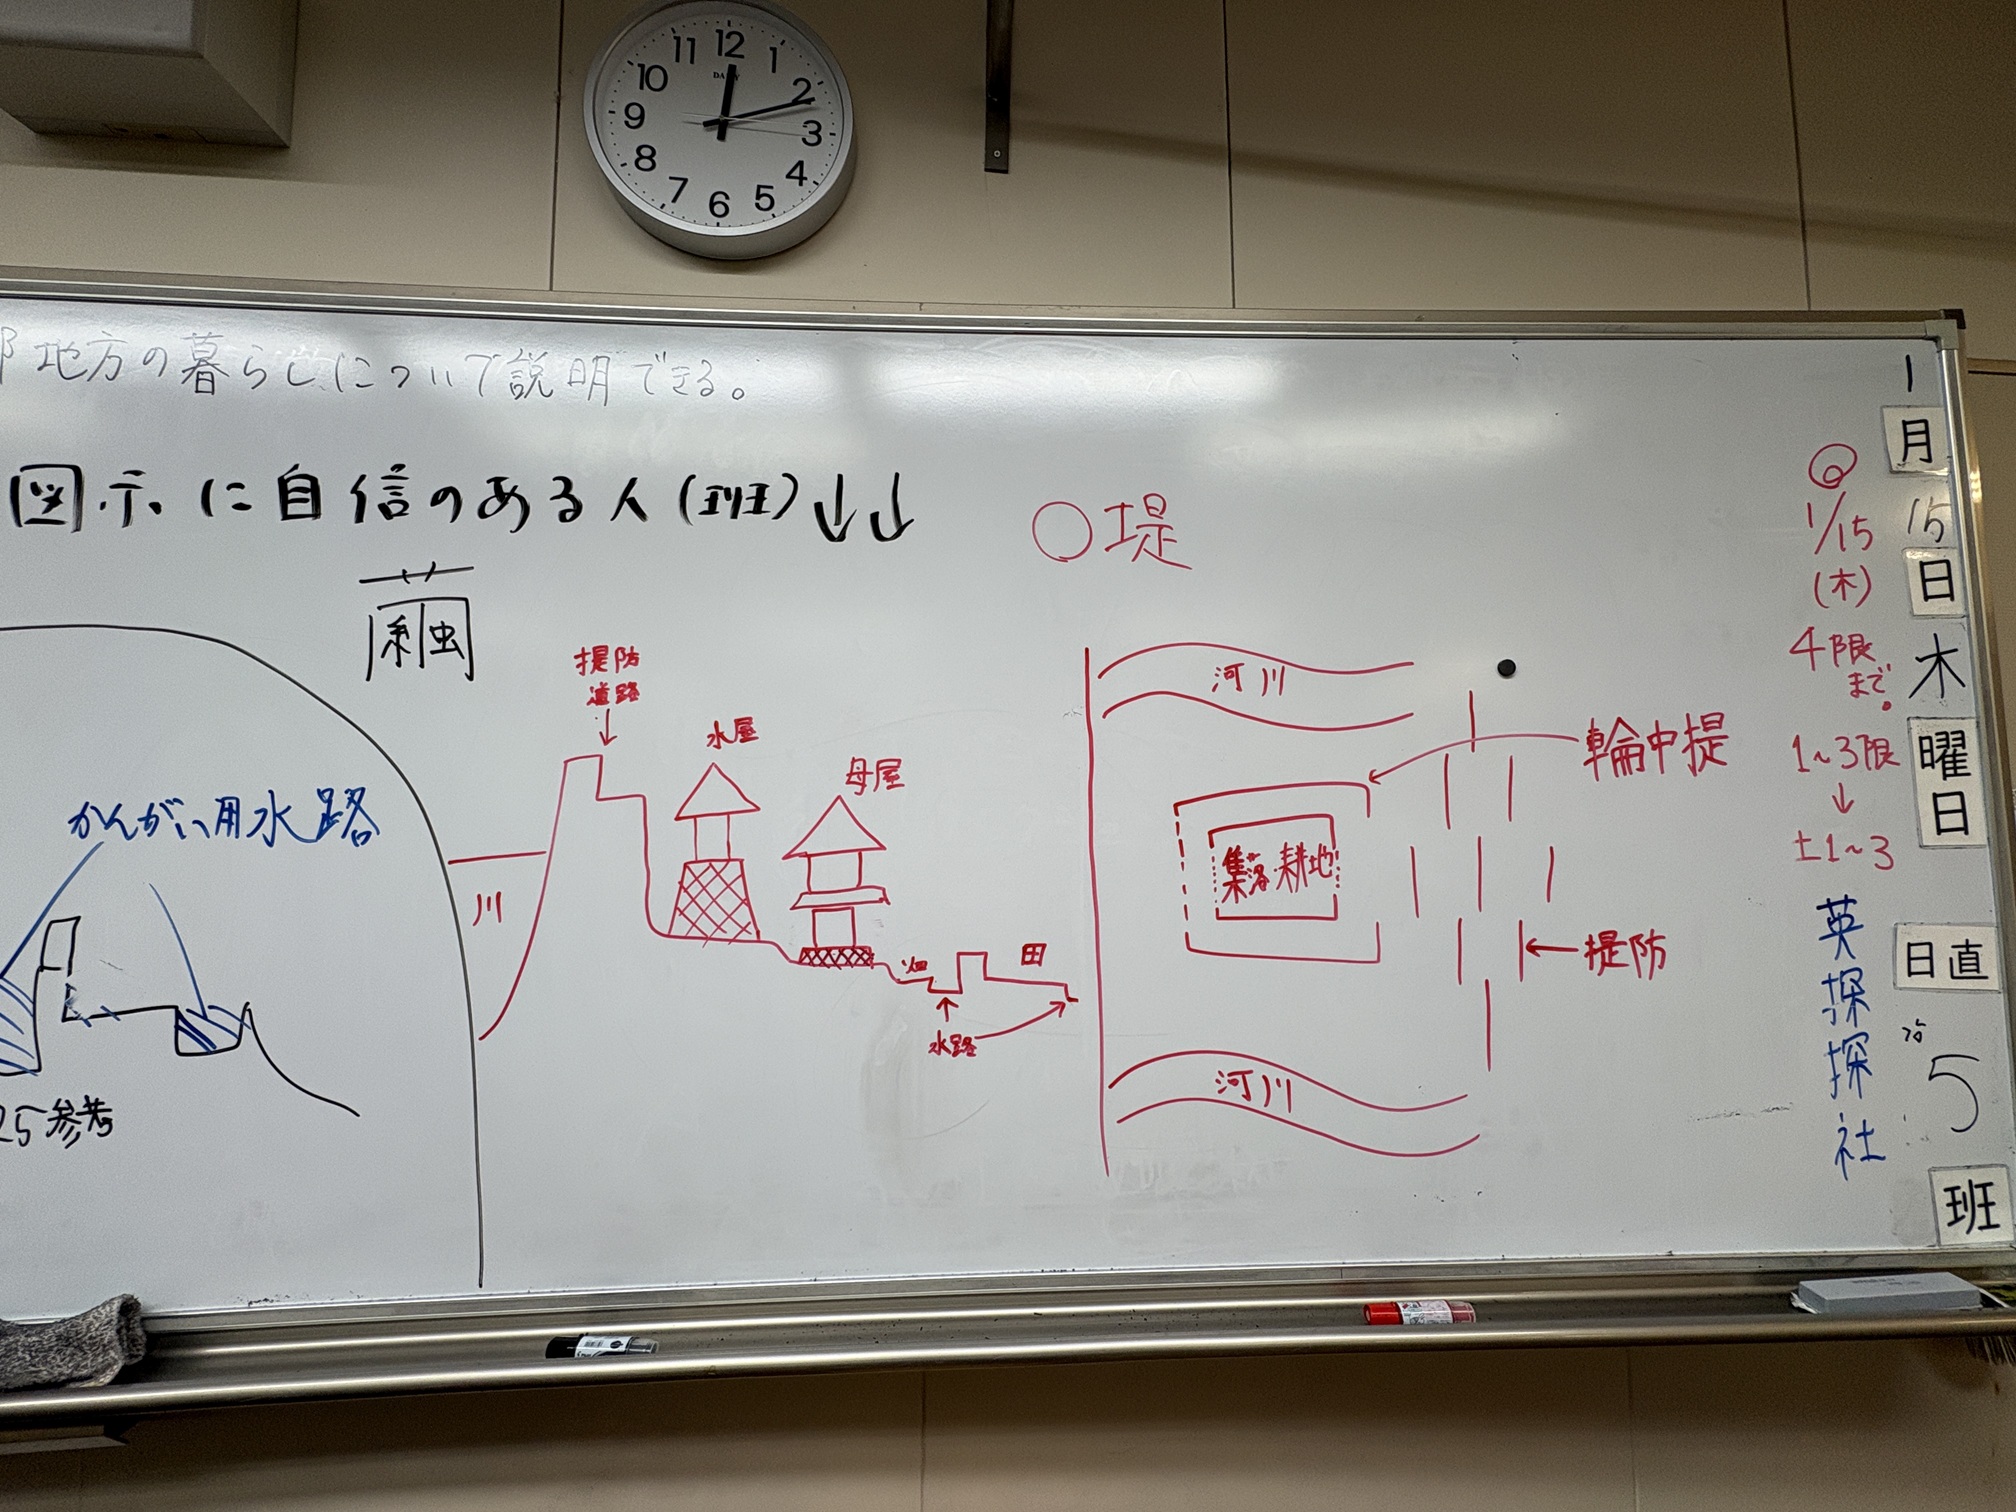 11 12 1
10 2
9 3
8 4
7 6 5
地方の暮らしについて説明できる。
図示に自信のある人(班)↓↓
○堤
繭
かんがい用水路
25参考
堤防
道路
↓
水屋
母屋
川
畑
田
水路
河川
輪中堤
集落・耕地
←堤防
河川
1/15
(木)
4限
まで。
1~3限
↓
土1~3
英
探
探
社
1
月
15
日
木
曜
日
日直
5
班